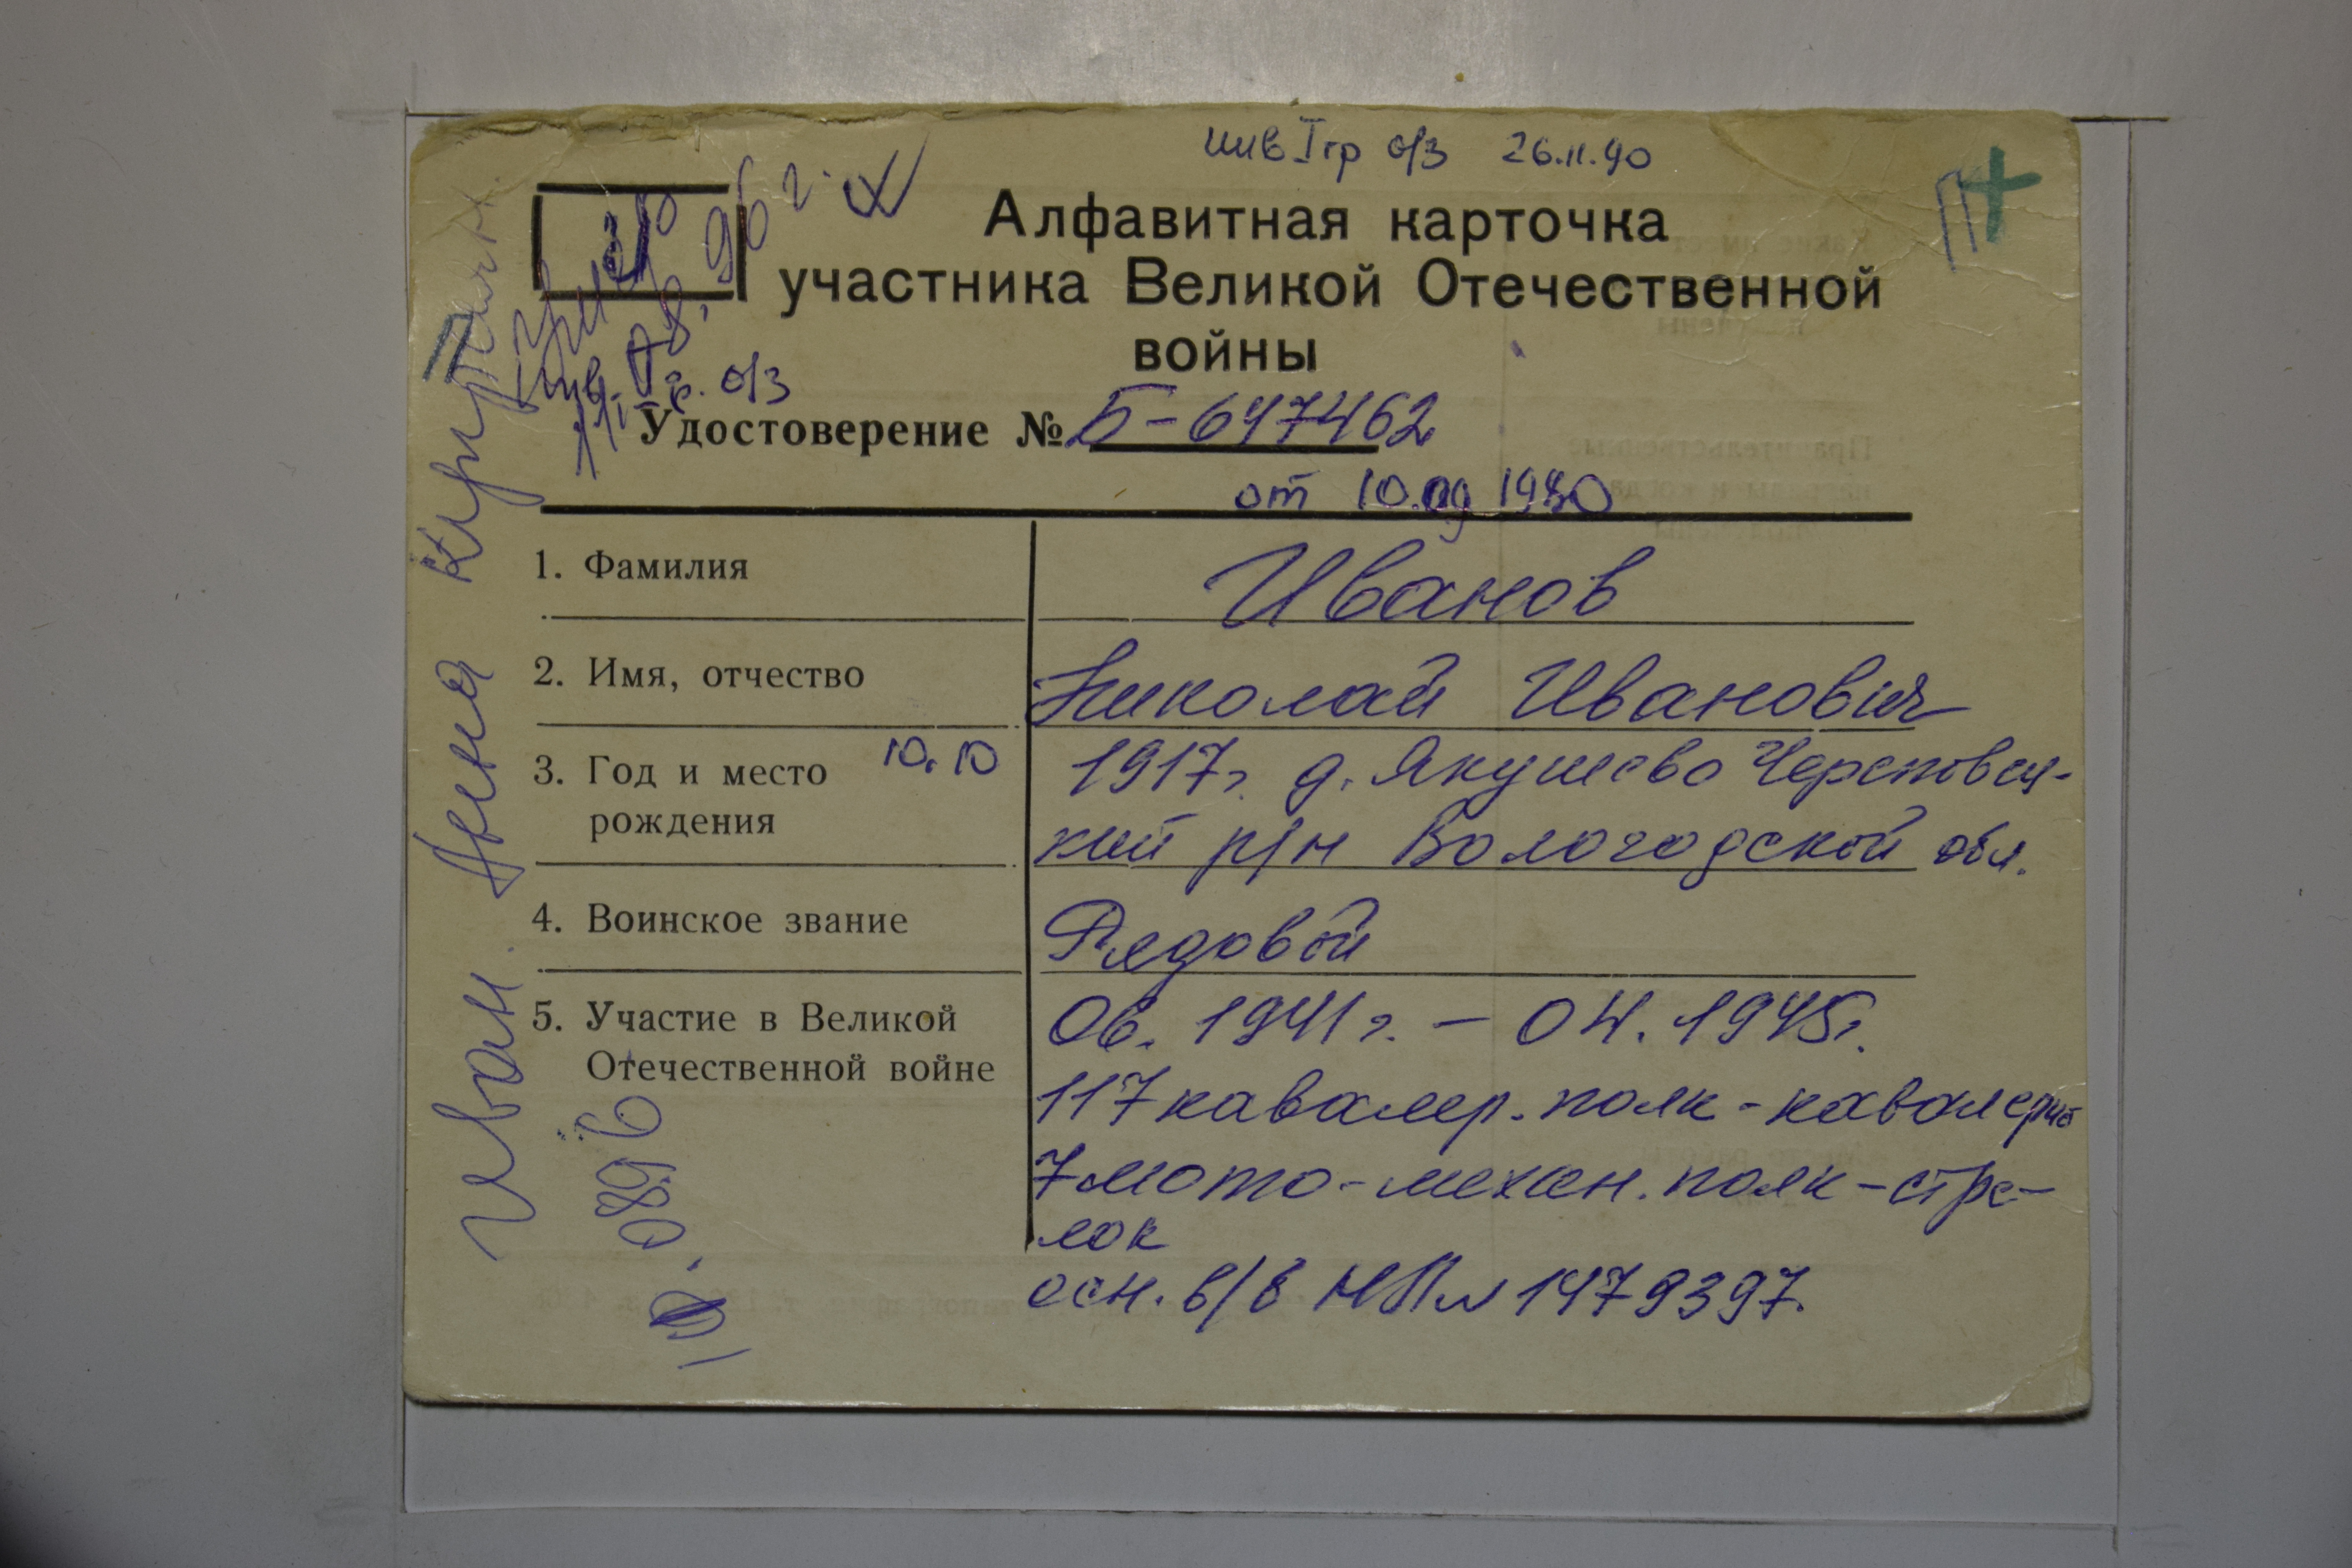 инв I гр о/з 26.11.90
Алфавитная карточка
участника Великой Отечественной
войны
96 г.
инв. гр. о/з
Удостоверение № Б-697462
от 10.09 1980
1. Фамилия Иванов
2. Имя, отчество Николай Иванович
3. Год и место 10.10 1917г. д. Якушево Череповец-
рождения кий р/н Вологодской обл.
4. Воинское звание Рядовой
5. Участие в Великой 06. 1941г. – 04. 1945г.
Отечественной войне
117 кавалер. полк - кавалерист
7 мото-механ. полк - стре-
лок
осн. в/б НП № 1479397.
Иван. Анна